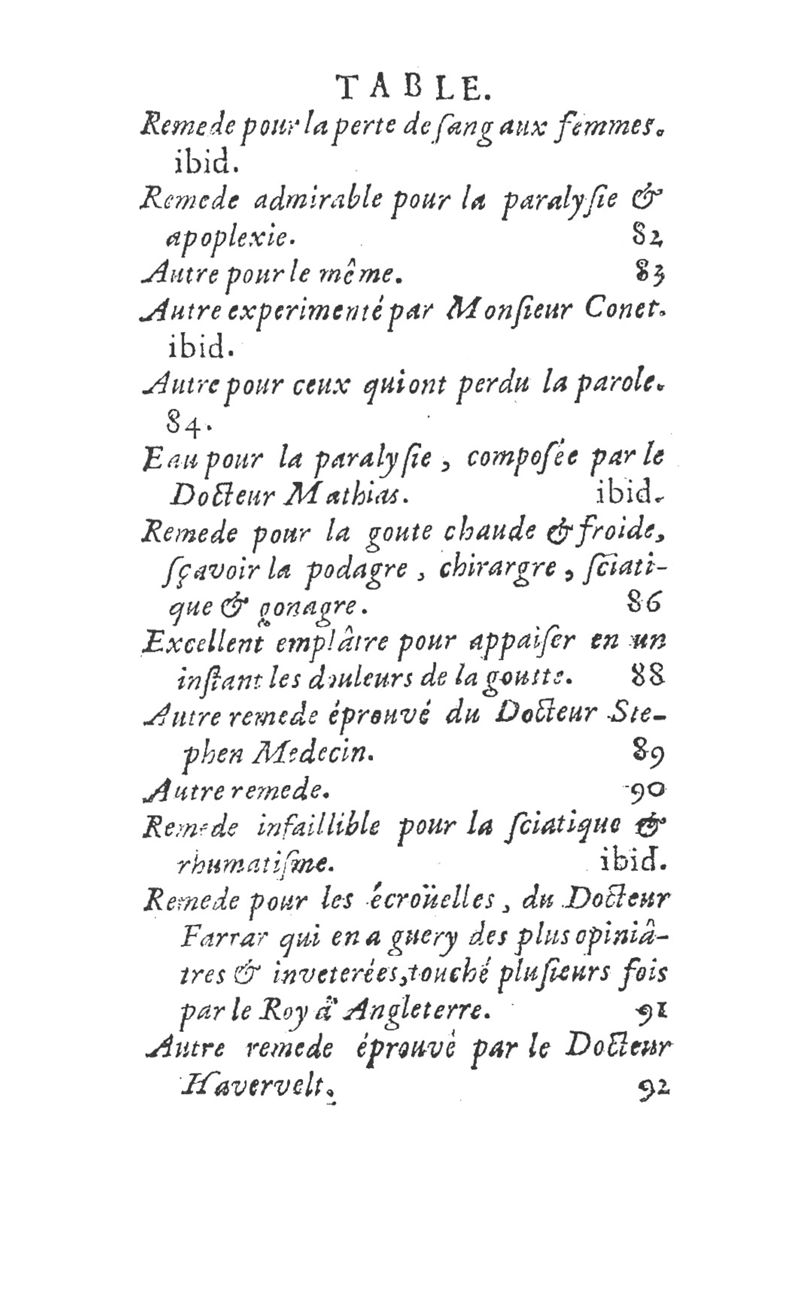 TABLE.
Remede pour la perte de ſang aux femmes.
ibid.
Remede admirable pour la paralyſie &
apoplexie. 82
Autre pour le même. 83
Autre experimenté par Monſieur Conet.
ibid.
Autre pour ceux qui ont perdu la parole.
84.
Eau pour la paralyſie, compoſée par le
Docteur Mathias. ibid.
Remede pour la goute chaude & froide,
ſçavoir la podagre, chirargre, ſciati-
que & gonagre. 86
Excellent emplâtre pour appaiſer en un
inſtant les douleurs de la goutte. 88
Autre remede éprouvé du Docteur Ste-
phen Medecin. 89
Autre remede. 90
Remede infaillible pour la ſciatique &
rhumatiſme. ibid.
Remede pour les écroüelles, du Docteur
Farrar qui en a guery des plus opiniâ-
tres & inveterées, touché pluſieurs fois
par le Roy d'Angleterre. 91
Autre remede éprouvé par le Docteur
Havervelt. 92